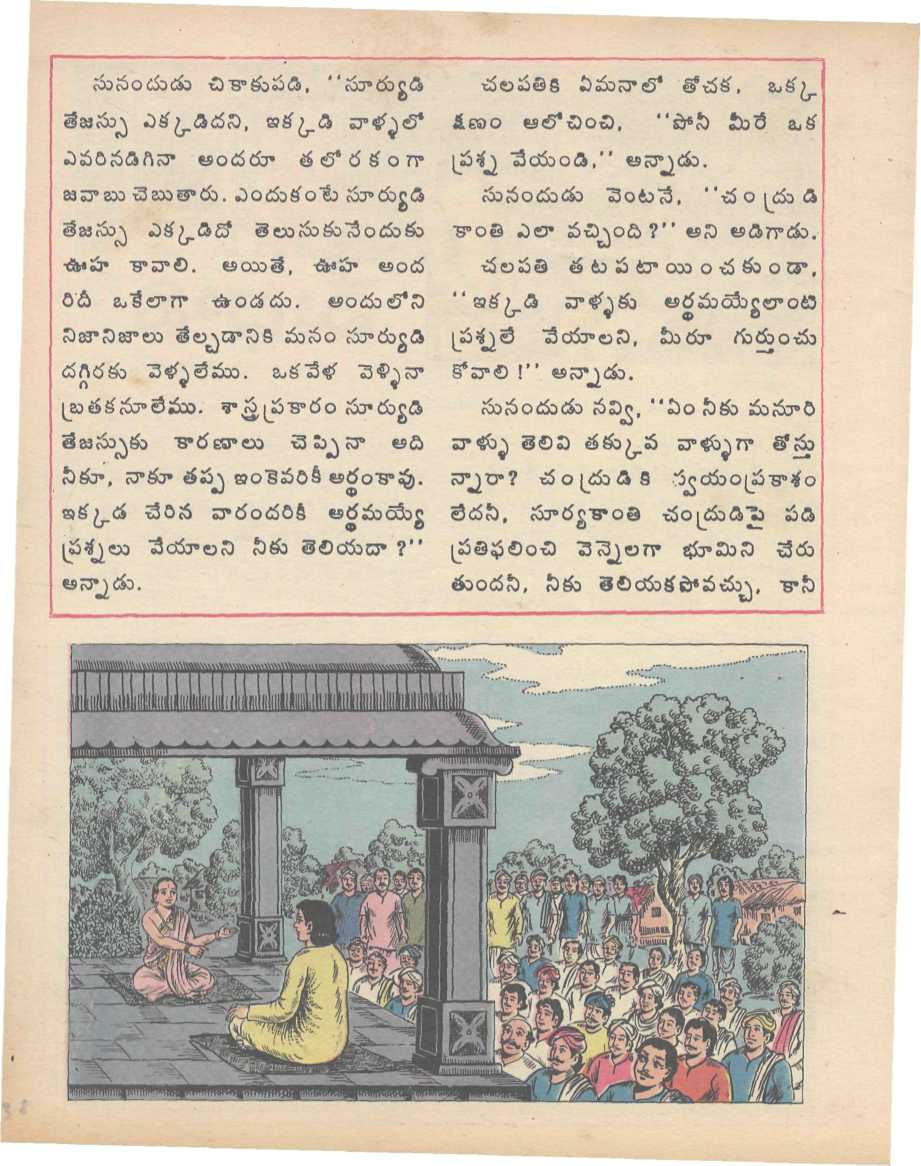 సునందుడు చికాకుపడి, ‘‘సూర్యుడి
తేజస్సు ఎక్కడిదని, ఇక్కడి వాళ్ళలో
ఎవరినడిగినా అందరూ తలోరకంగా
జవాబు చెబుతారు. ఎందుకంటే సూర్యుడి
తేజస్సు ఎక్కడిదో తెలుసుకునేందుకు
ఊహ కావాలి. అయితే, ఊహ అంద
రిదీ ఒకేలాగా ఉండదు. అందులోని
నిజానిజాలు తేల్చడానికి మనం సూర్యుడి
దగ్గిరకు వెళ్ళలేము. ఒకవేళ వెళ్ళినా
బ్రతకనూలేము. శాస్త్రప్రకారం సూర్యుడి
తేజస్సుకు కారణాలు చెప్పినా అది
నీకూ, నాకూ తప్ప ఇంకెవరికీ అర్థంకావు.
ఇక్కడ చేరిన వారందరికీ అర్థమయ్యే
ప్రశ్నలు వేయాలని నీకు తెలియదా?’’
అన్నాడు.
చలపతికి ఏమనాలో తోచక, ఒక్క
క్షణం ఆలోచించి, ‘‘పోనీ మీరే ఒక
ప్రశ్న వేయండి,’’ అన్నాడు.
సునందుడు వెంటనే, ‘‘చంద్రుడి
కాంతి ఎలా వచ్చింది?’’ అని అడిగాడు.
చలపతి తటపటాయించకుండా,
‘‘ఇక్కడి వాళ్ళకు అర్థమయ్యేలాంటి
ప్రశ్నలే వేయాలని, మీరూ గుర్తుంచు
కోవాలి!’’ అన్నాడు.
సునందుడు నవ్వి, ‘‘ఏం నీకు మనూరి
వాళ్ళు తెలివి తక్కువ వాళ్ళుగా తోస్తు
న్నారా? చంద్రుడికి స్వయంప్రకాశం
లేదనీ, సూర్యకాంతి చంద్రుడిపై పడి
ప్రతిఫలించి వెన్నెలగా భూమిని చేరు
తుందనీ, నీకు తెలియకపోవచ్చు, కానీ